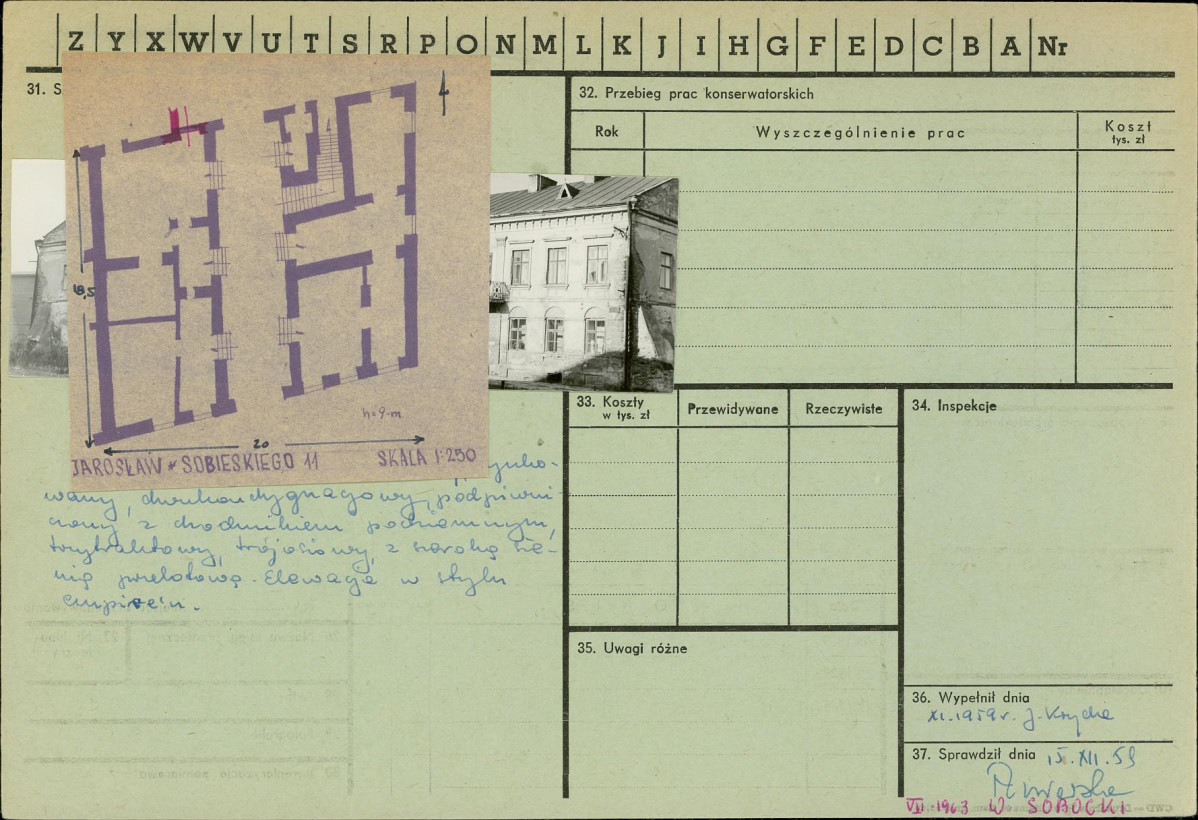 Z Y X W V U T S R P O N M L K J I H G F E D C B A Nr
31. S
4
18,5
h=9 m
20
JAROSŁAW * SOBIESKIEGO 11 SKALA 1:250
wany, dwukondygnacyjny, podpiwni-
czony z chodnikiem podziemnym,
trzytraktowy, trójosiowy, z szeroką sie-
nią przelotową. Elewacja w stylu
empire'u.
32. Przebieg prac konserwatorskich
Rok Wyszczególnienie prac Koszt
tys. zł
33. Koszty
w tys. zł
Przewidywane Rzeczywiste
34. Inspekcje
35. Uwagi różne
36. Wypełnił dnia
XI.1959 r. J. Krycha
37. Sprawdził dnia 15.XII.59
VI 1963 W SOBOCKI